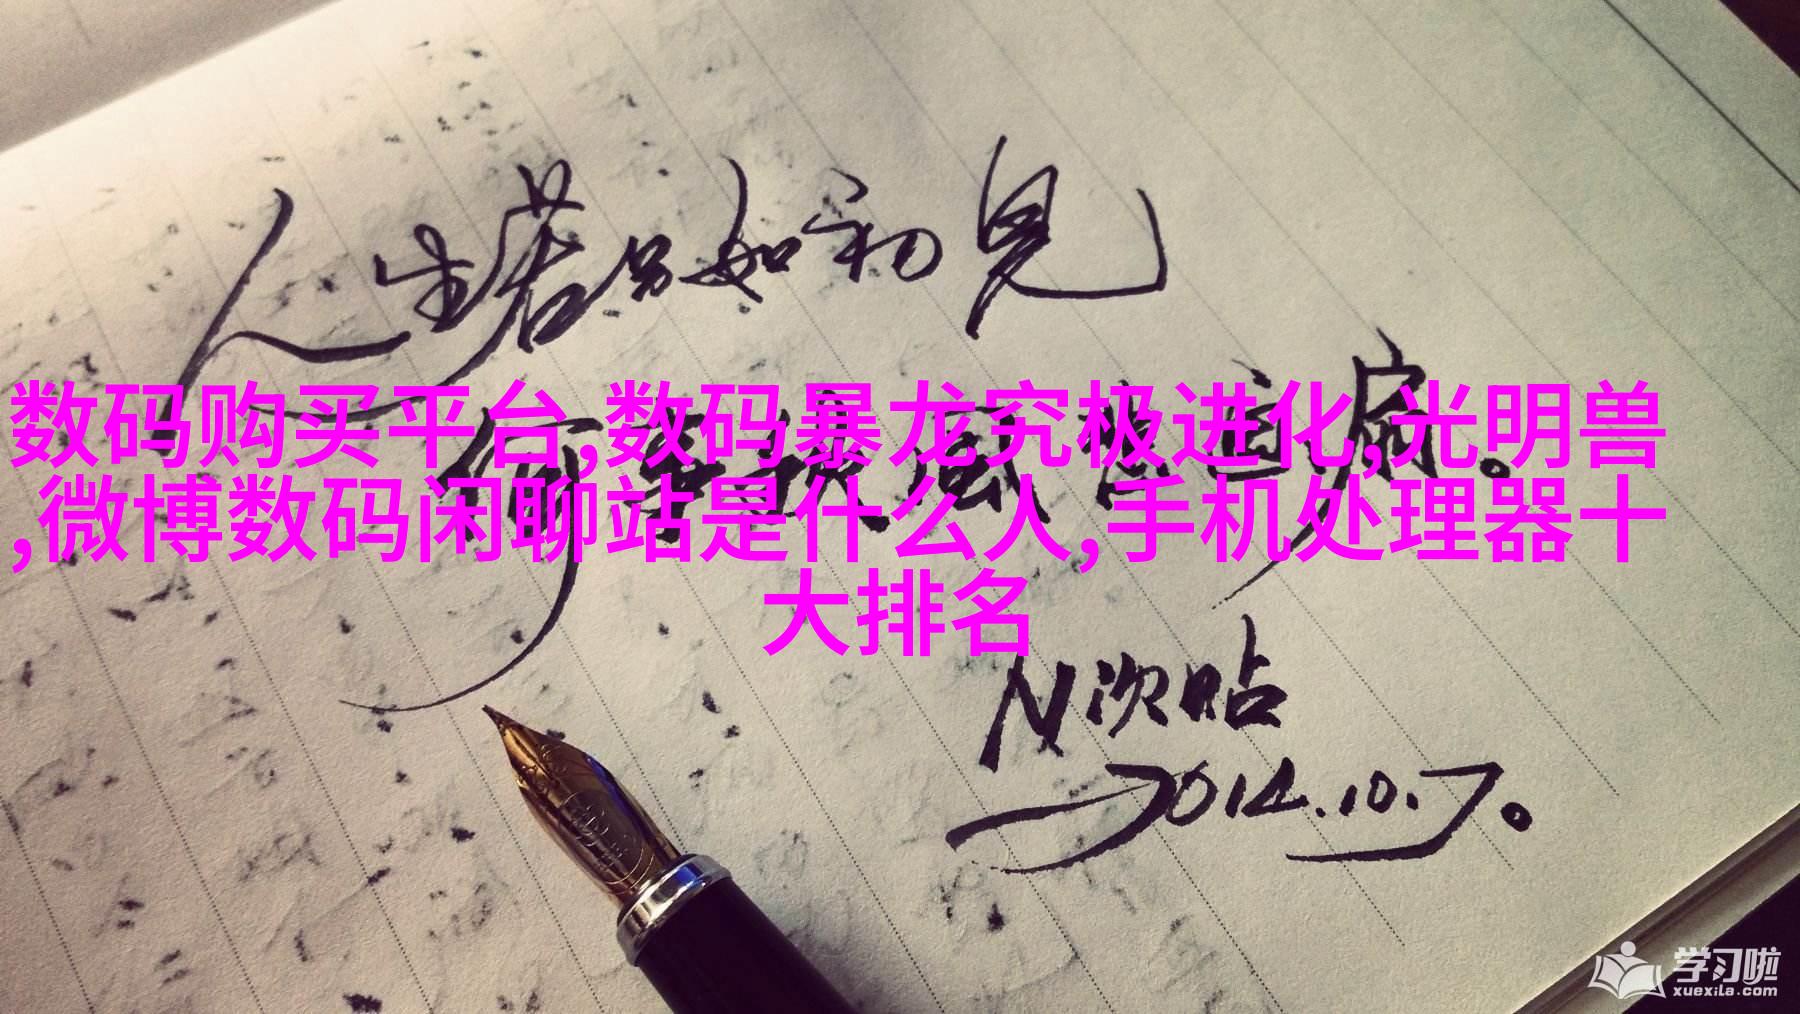 人生若只如初見
何事秋風悲畫扇。
数码购买平台,数码暴龙究极进化,光明兽
,微博数码闲聊站是什么人,手机处理器十
大排名
N次贴
2014.10.7。
学习啦
xuexila.com